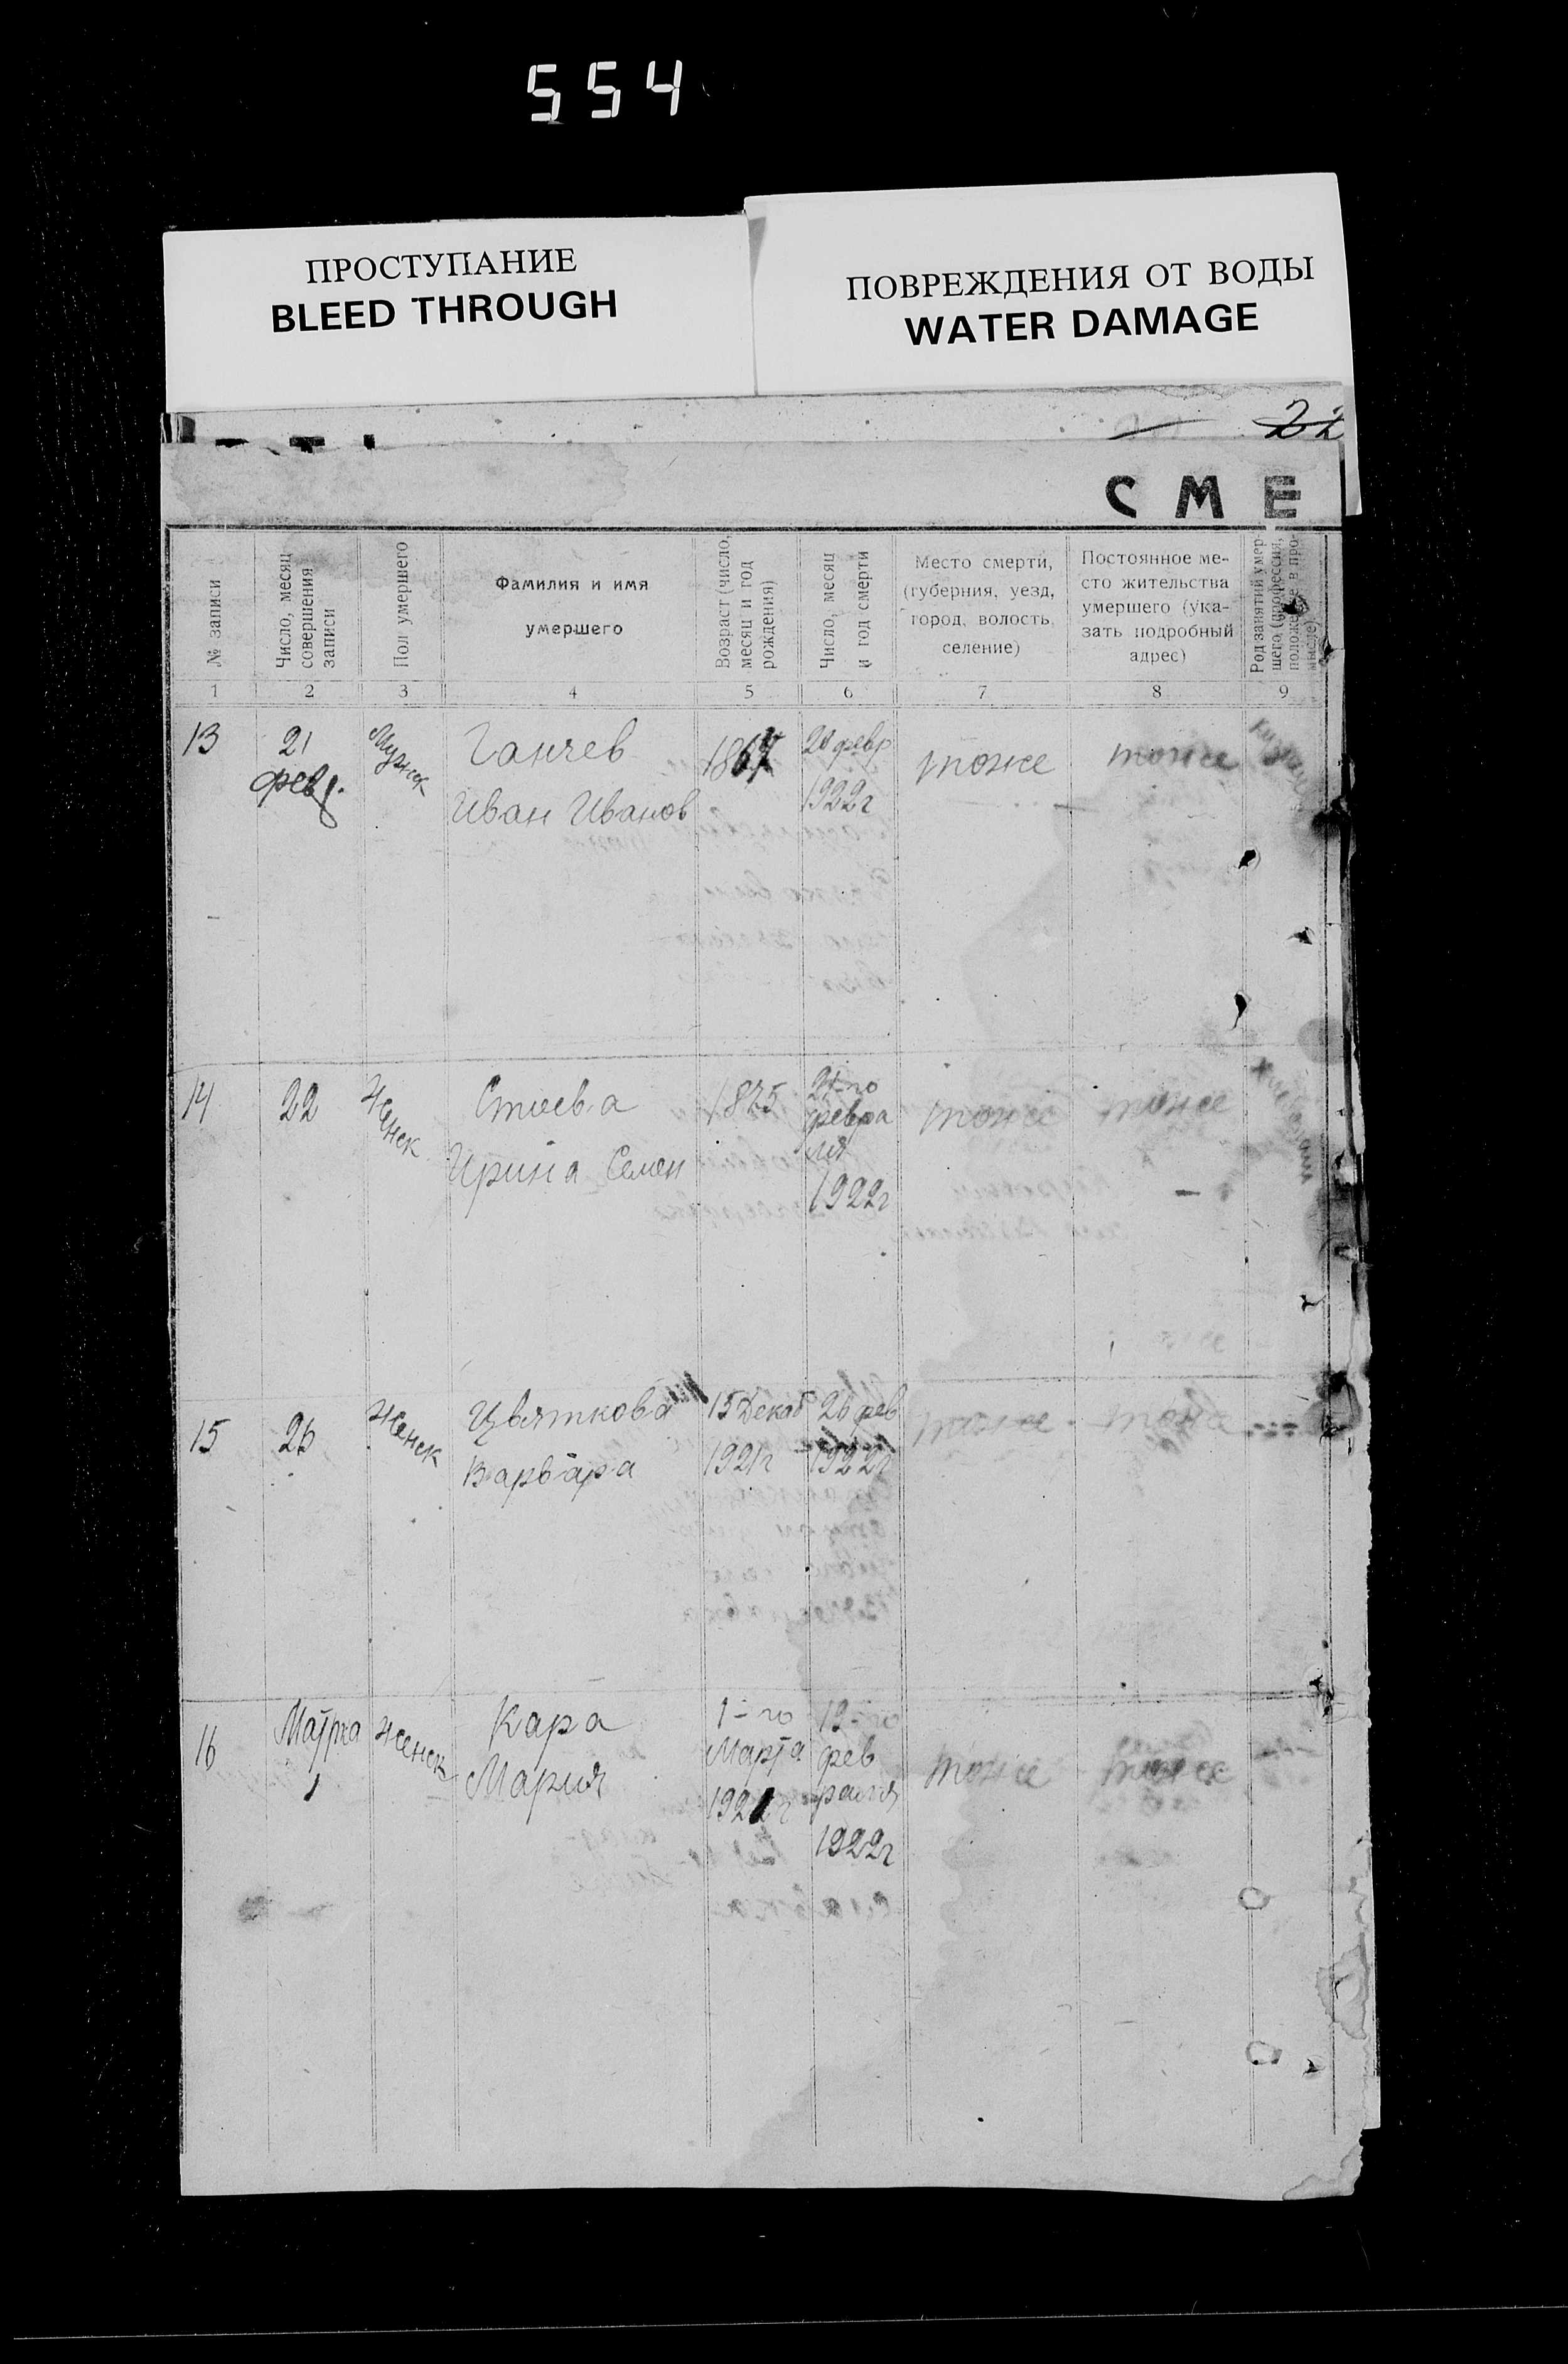 554
ПРОСТУПАНИЕ
BLEED THROUGH
ПОВРЕЖДЕНИЯ ОТ ВОДЫ
WATER DAMAGE
22
СМЕ
№ записи
Число, месяц
совершения
записи
Пол умершего
Фамилия и имя
умершего
Возраст (число,
месяц и год
рождения)
Число, месяц
и год смерти
Место смерти,
(губерния, уезд,
город, волость,
селение)
Постоянное ме-
сто жительства
умершего (ука-
зать подробный
адрес)
Род занятий умер-
шего (профессия,
положение в про-
мысле)
1 2 3 4 5 6 7 8 9
13
21
февр.
Мужск
Ганчев
Иван Иванов
186
февр
1922г
тоже
тоже
14
22
Женск
Стоева
Ирина Семен
1875
21-го
февра
ля
1922г
тоже
тоже
15
26
Женск
Цвяткова
Варвара
15 Декаб
1921г
26 фев
1922г
тоже
тоже
16
Марта
1
Женск
Кара
Мария
1-го
Марта
1921г
19-го
фев
раля
1922г
тоже
тоже